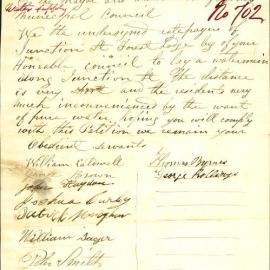 Water Supply
No 702
Municipal Council
We the undersigned ratepayers of
Junction St Forest Lodge beg of your
Honorable council to lay a watermain
along Junction St The distance
is very short and the residents very
much inconvenienced by the want
of pure water, hoping you will comply
with this Petition we remain your
Obedient servants
William Caldwell
Thomas Byrnes
George Brown
George Rollings
James Haydon
Joshua Kirby
William
Peter Smith